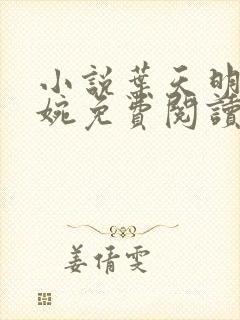 小説葉天明
婉免費閱讀
姜倩雯